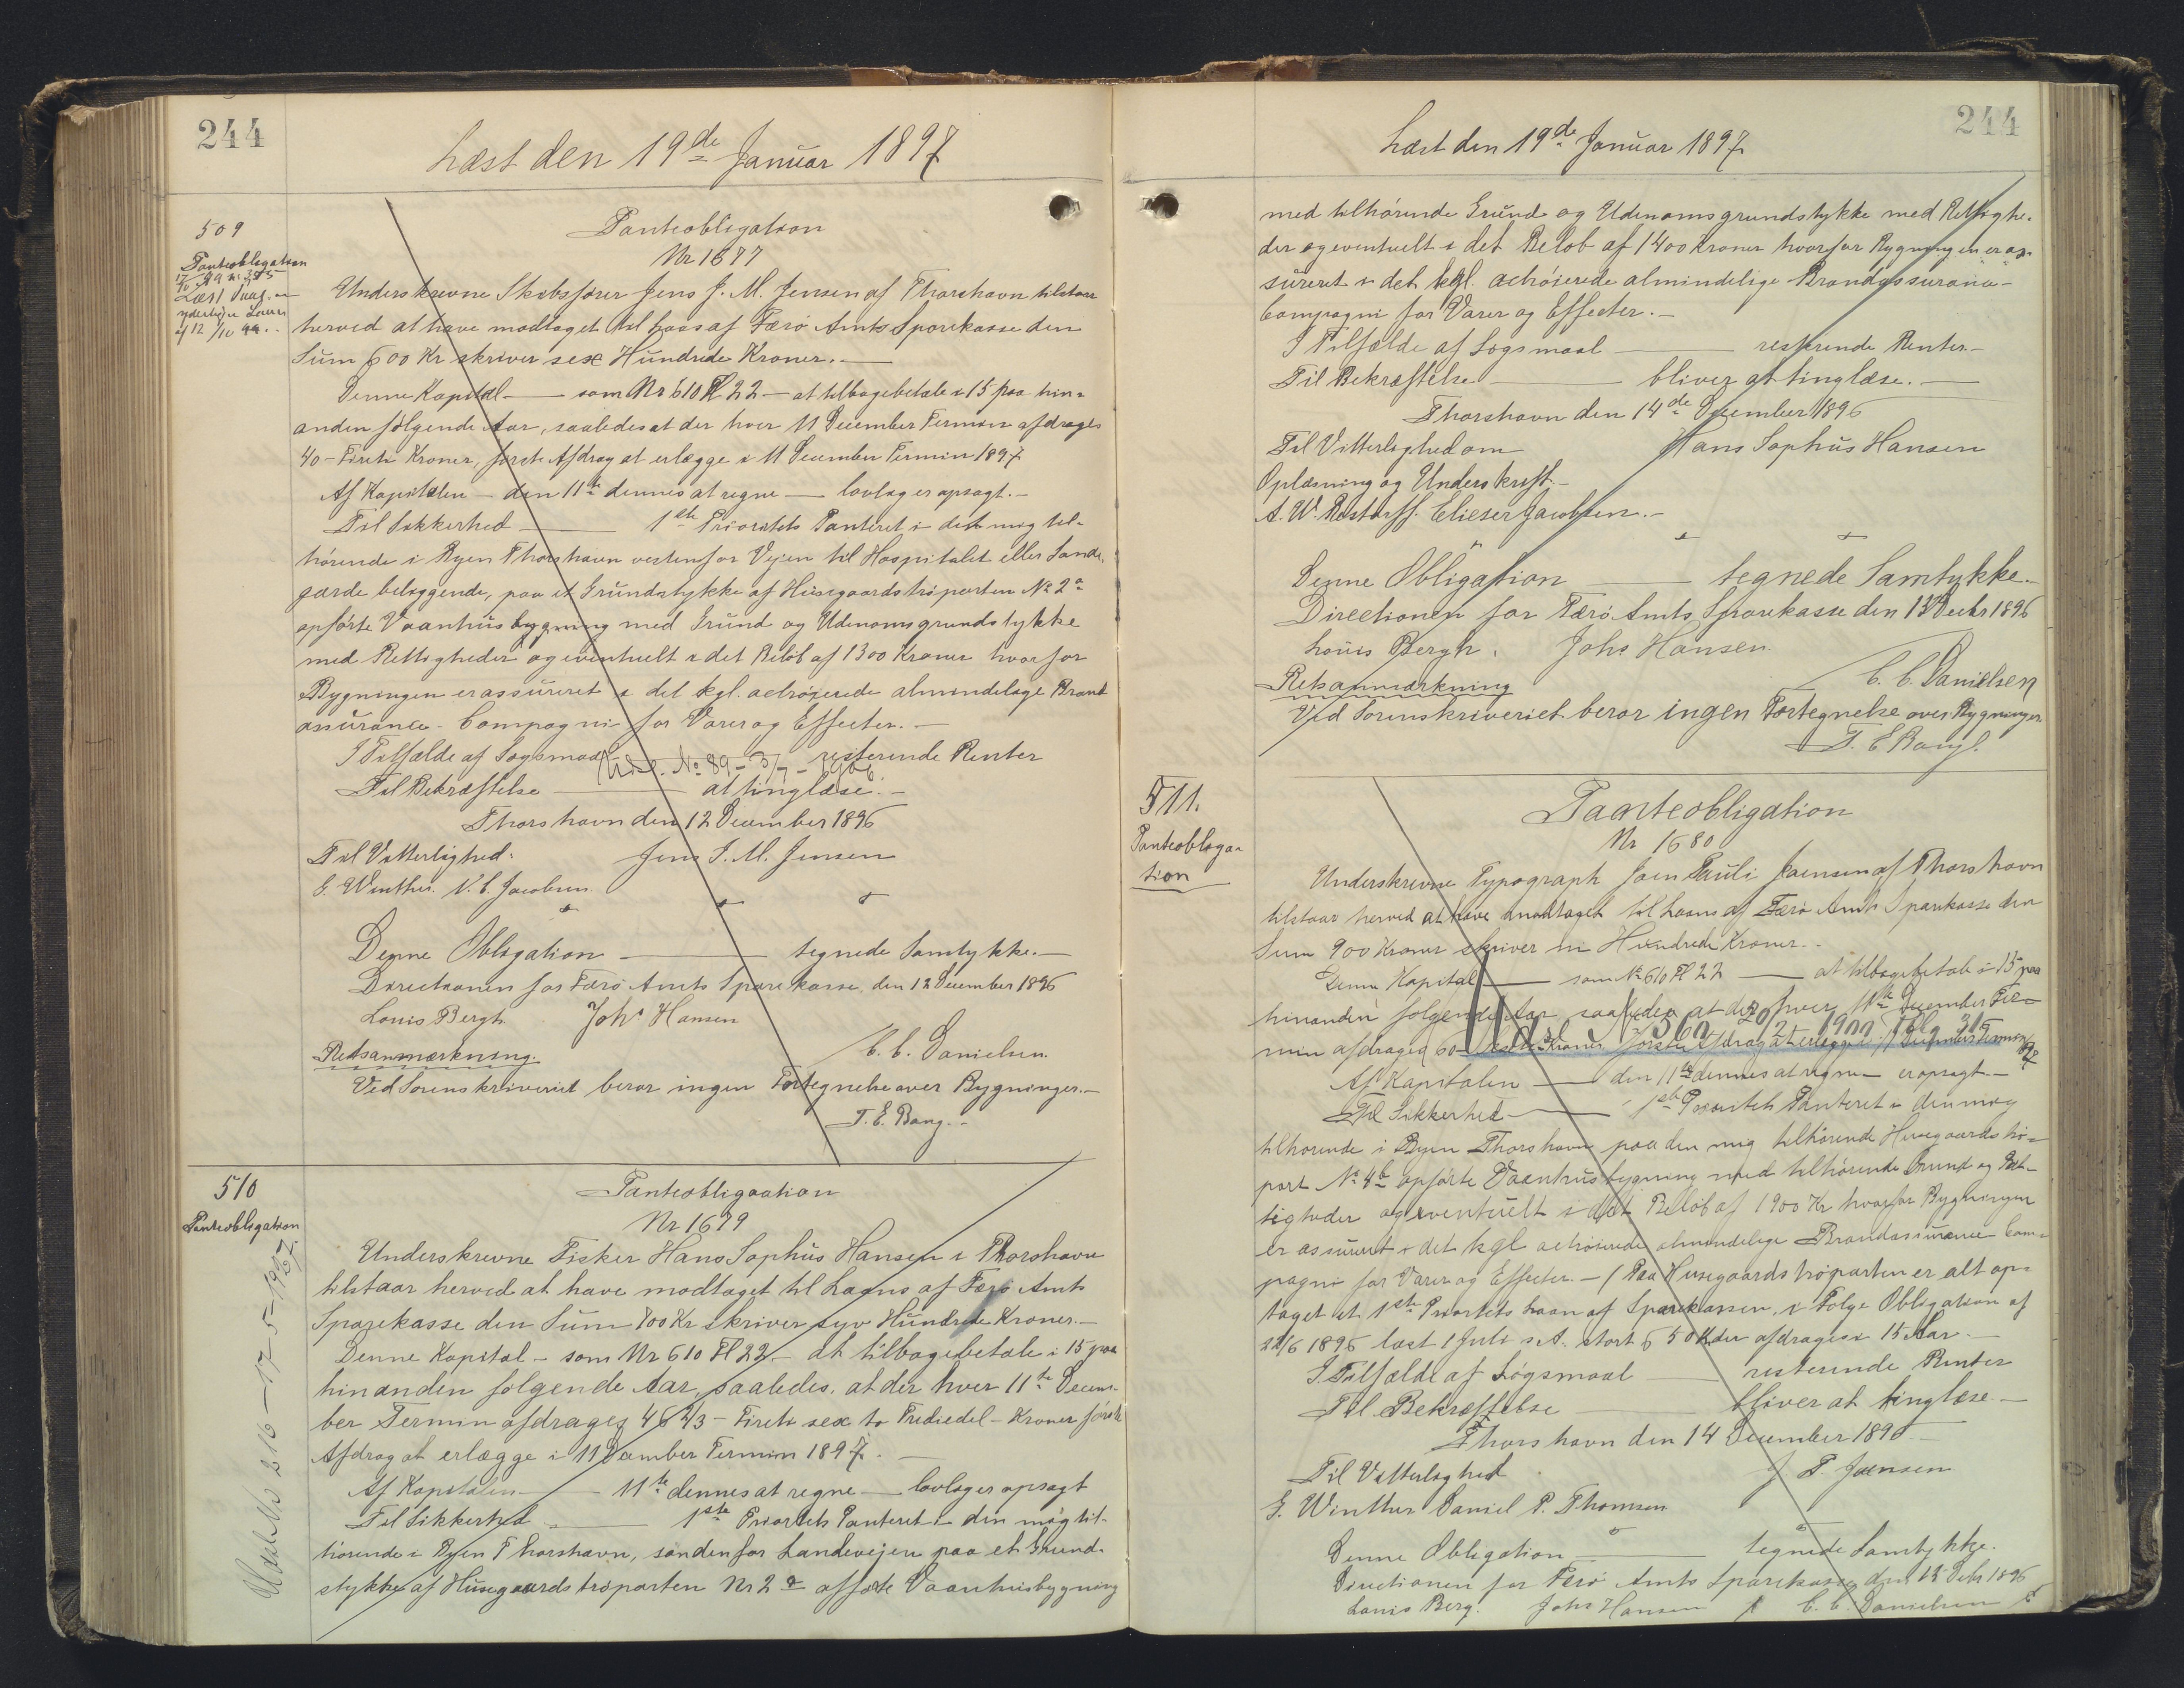 244
Læst den 19de Januar 1897
509
Panteobligation
Læst Paag. om
yderligere Laan
Panteobligation
Nr 1677
Underskrevne Skibsfører Jens J. M. Jensen af Thorshavn tilstaar
herved at have modtaget til Laans af Færø Amts Sparekasse den
Sum 600 Kr skriver sex Hundrede Kroner. —
Denne Kapital — som Nr 610 Fl 22 — at tilbagebetale i 15 paa hin-
anden følgende Aar, saaledes at der hver 11 December Termin afdrages
40 - Fireti Kroner, første Afdrag at erlægge i 11 December Termin 1897
Af Kapitalen — den 11te dennes at regne — lovlig er opsagt. —
Til Sikkerhed — 1ste Prioritets Panteret i det mig til-
hørende i Byen Thorshavn vestenfor Vejen til Hospitalet eller Sande-
gærde beliggende, paa et Grundstykke af Husegaardströparten No 2a
opførte Vaanhusbygning med Grund og Udenomsgrundstykke
med Rettigheder og eventuelt i det Beløb af 1300 Kroner hvorfor
Bygningen er assureret i det kgl. octroierede almindelige Brand
assurance-Compagni for Varer og Effecter. —
I Tilfælde af Søgsmaal — resterende Renter
Udsl. No 89 - 3/7 - 1906.
Til Bekræftelse — at tinglæse. —
Thorshavn den 12 December 1896
Til Vitterlighed: Jens J. M. Jensen
G. Winther. N. C. Jacobsen
Denne Obligation — tegnede Samtykke. —
Directionen for Færø Amts Sparekasse, den 12 December 1896
Louis Bergh Johs Hansen
C. C. Danielsen.
Retsanmærkning.
Ved Sorenskriveriet beror ingen Fortegnelse over Bygninger. —
T. E. Bang. -
510
Panteobligation
Udslt No 216 — 17-5-1917.
Panteobligaation
Nr 1679
Underskrevne Fisker Hans Sophus Hansen i Thorshavn
tilstaar herved at have modtaget til Laans af Færø Amts
Sparekasse den Sum 700 Kr skriver syv Hundrede Kroner. —
Denne Kapital - som Nr 610 Fl 22 - at tilbagebetale i 15 paa
hinanden følgende Aar, saaledes, at der hver 11te Decem-
ber Termin afdrages 46 2/3 - Fireti sex to Trediedel - Kroner første
Afdrag at erlægge i 11 December Termin 1897. —
Af Kapitalen — 11te dennes at regne — lovlig er opsagt
Til Sikkerhed — 1ste Prioritets Panteret i den mig til-
hørende i Byen Thorshavn, søndenfor Landevejen paa et Grund-
stykke af Husegaardströparten Nr 2a opførte Vaanhusbygning
244
Læst den 19de Januar 1897
med tilhørende Grund og Udenomsgrundstykke med Rettighe-
der og eventuelt i det Beløb af 1400 Kroner hvorfor Bygningen er as-
sureret i det kgl. octroierede almindelige Brandassurance-
Compagni for Varer og Effecter. —
I Tilfælde af Søgsmaal — resterende Renter —
Til Bekræftelse — bliver at tinglæse. —
Thorshavn den 14de December 1896
Til Vitterlighed om Hans Sophus Hansen
Oplæsning og Underskrift. —
A. W. Restorff. Elieser Jacobsen. —
Denne Obligation — tegnede Samtykke. —
Directionen for Færø Amts Sparekasse den 15 Decbr 1896
Louis Bergh. Johs Hansen.
C. C. Danielsen
Retsanmærkning
Ved Sorenskriveriet beror ingen Fortegnelse over Bygninger
T. E. Bang.
511.
Panteobliga-
tion
Panteobligation
Nr 1680
Underskrevne Typograph Joen Pauli Joensen af Thorshavn
tilstaar herved at have modtaget til Laans af Færø Amts Sparekasse den
Sum 900 Kroner skriver ni Hundrede Kroner. -
Denne Kapital — som No 610 Fl 22 — at tilbagebetale i 15 paa
hinanden følgende Aar saaledes at der hver 11te December Ter-
min afdrages 60 - Kroner første Afdrag at erlægge i 11 December Termin 97
Af Kapitalen — den 11te dennes at regne — er opsagt —
Til Sikkerhed — 1ste Prioritets Panteret i den mig
tilhørende i Byen Thorshavn paa den mig tilhørende Husegaardströ-
part No 4b opførte Vaanhusbygning med tilhørende Grund og Ret-
tigheder og eventuelt i det Beløb af 1900 Kr hvorfor Bygningen
er assureret i det kgl octroierede almindelige Brandassurance Com-
pagni for Varer og Effecter. — (Paa Husegaardströparten er alt op-
taget et 1ste Prioritets Laan af Sparekassen, i Følge Obligation af
1896 læst 1 Juli s. A. stort 650 Kr der afdrages i 15 Aar. —
I Tilfælde af Søgsmaal — resterende Renter
Til Bekræftelse — bliver at tinglæse —
Thorshavn den 14 December 1896
Til Vitterlighed J P. Joensen
G. Winther Daniel P. Thomsen
Denne Obligation — tegnede Samtykke.
Directionen for Færø Amts Sparekasse den 15 Decbr 1896
Louis Berg. Johs Hansen C. C. Danielsen